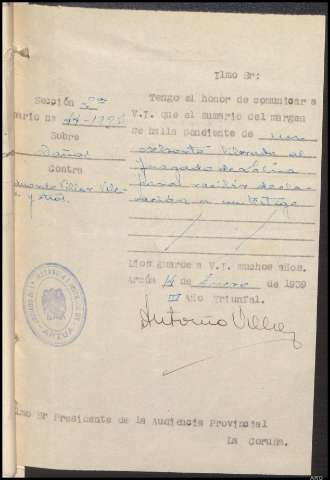 Ilmo Sr:
Sección 2ª
ario nº 44-1938
Sobre
Daños
Contra
y otros.
Tengo el honor de comunicar a
V.I. que el sumario del margen
se halla pendiente de un
exhorto librado al
Juzgado de
para recibir decla-
ración a un testigo
Dios guarde a V.I. muchos años.
Arzúa 14 de Enero de 1939
III Año Triunfal.
Antonio
ARZUA
lmo Sr Presidente de la Audiencia Provincial
La Coruña.